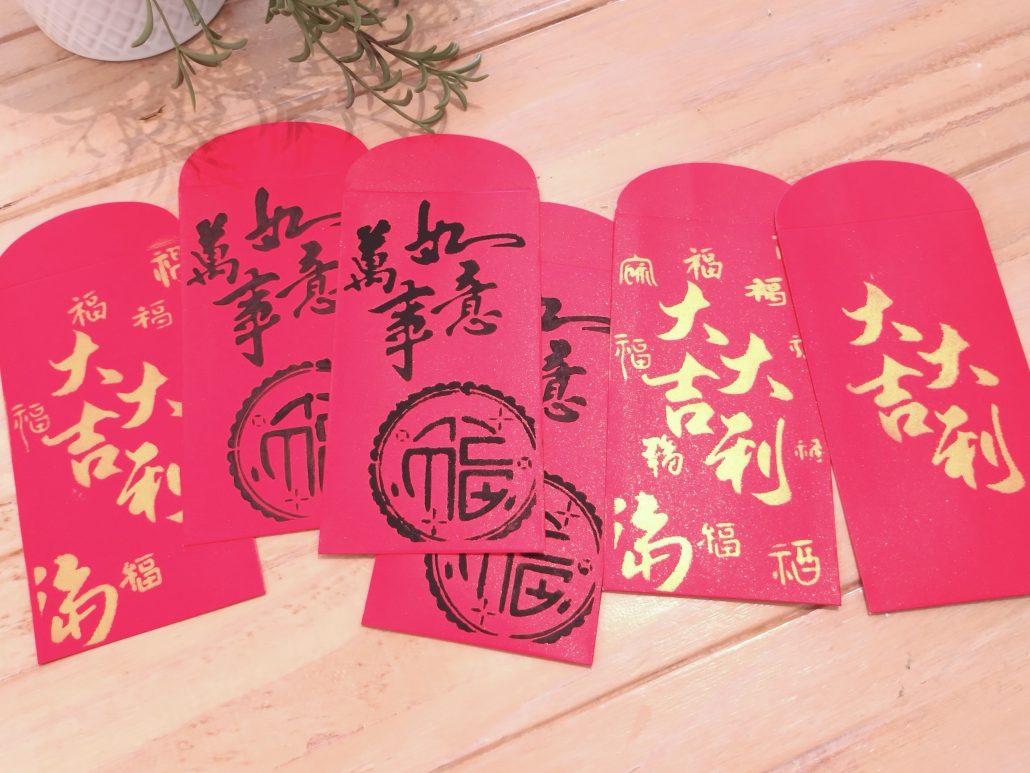 福
福
福
大吉
大利
福
滿
福
萬事
如意
福
萬事
如意
福
如意
福
福
福
福
大吉
大利
滿
福
福
大吉
大利